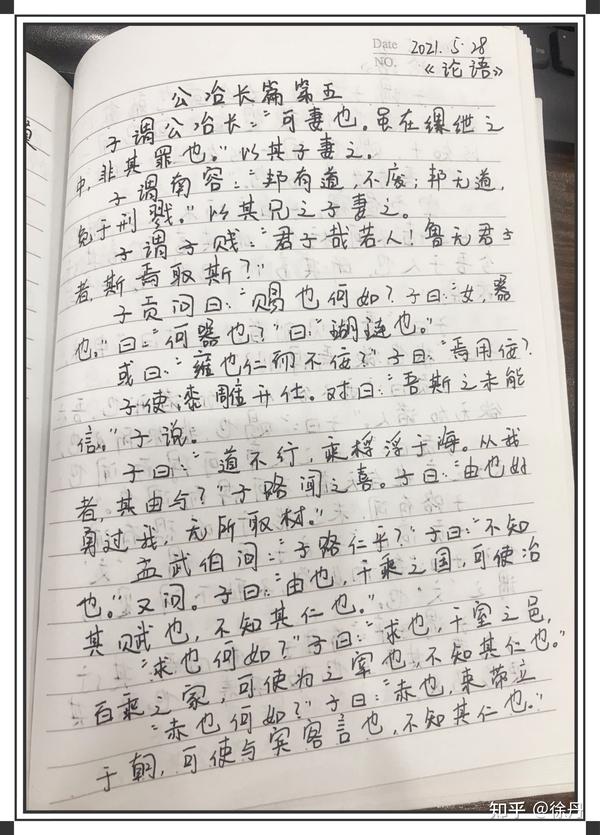 Date 2021.5.28
NO. 《论语》
公冶长篇第五
子谓公冶长:“可妻也。虽在缧绁之
中,非其罪也。”以其子妻之。
子谓南容:“邦有道,不废;邦无道,
免于刑戮。”以其兄之子妻之。
子谓子贱:“君子哉若人!鲁无君子
者,斯焉取斯?”
子贡问曰:“赐也何如?子曰:“女,器
也。”曰:“何器也?”曰:“瑚琏也。”
或曰:“雍也仁而不佞?”子曰:“焉用佞?
子使漆雕开仕。对曰:“吾斯之未能
信。”子说。
子曰:“道不行,乘桴浮于海。从我
者,其由与?”子路闻之喜。子曰:“由也好
勇过我,无所取材。”
孟武伯问:“子路仁乎?”子曰:“不知
也。”又问。子曰:“由也,千乘之国,可使治
其赋也,不知其仁也。”
“求也何如?”子曰:“求也,千室之邑,
百乘之家,可使为之宰也,不知其仁也。”
“赤也何如?”子曰:“赤也,束带立
于朝,可使与宾客言也,不知其仁也。”
知乎 @徐丹